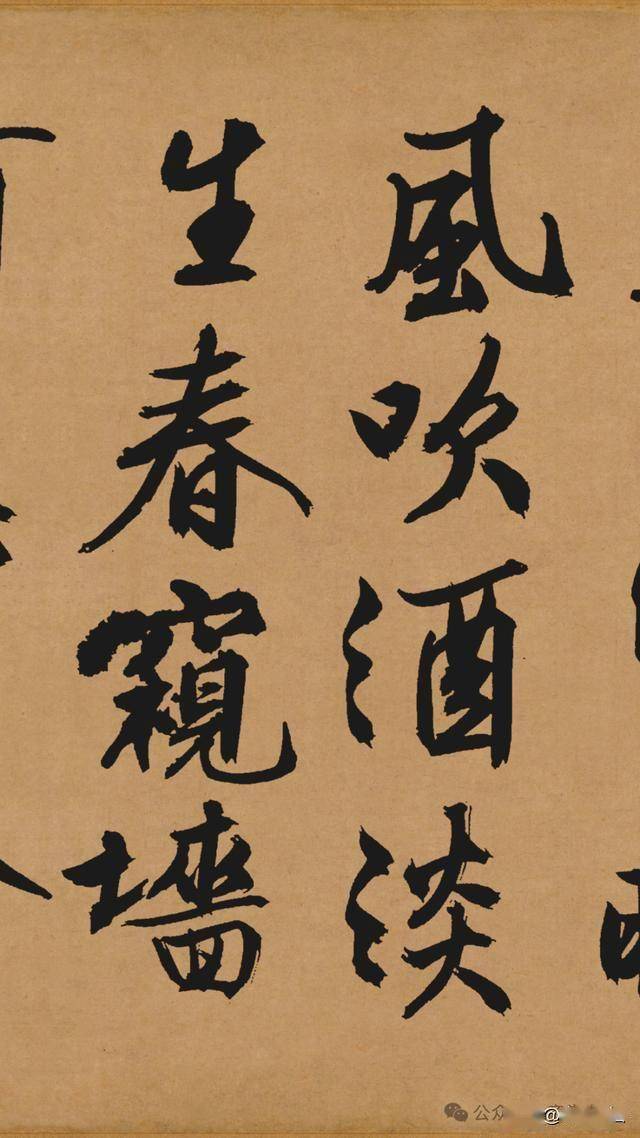 風吹酒淡
生春窺墻
公众
@